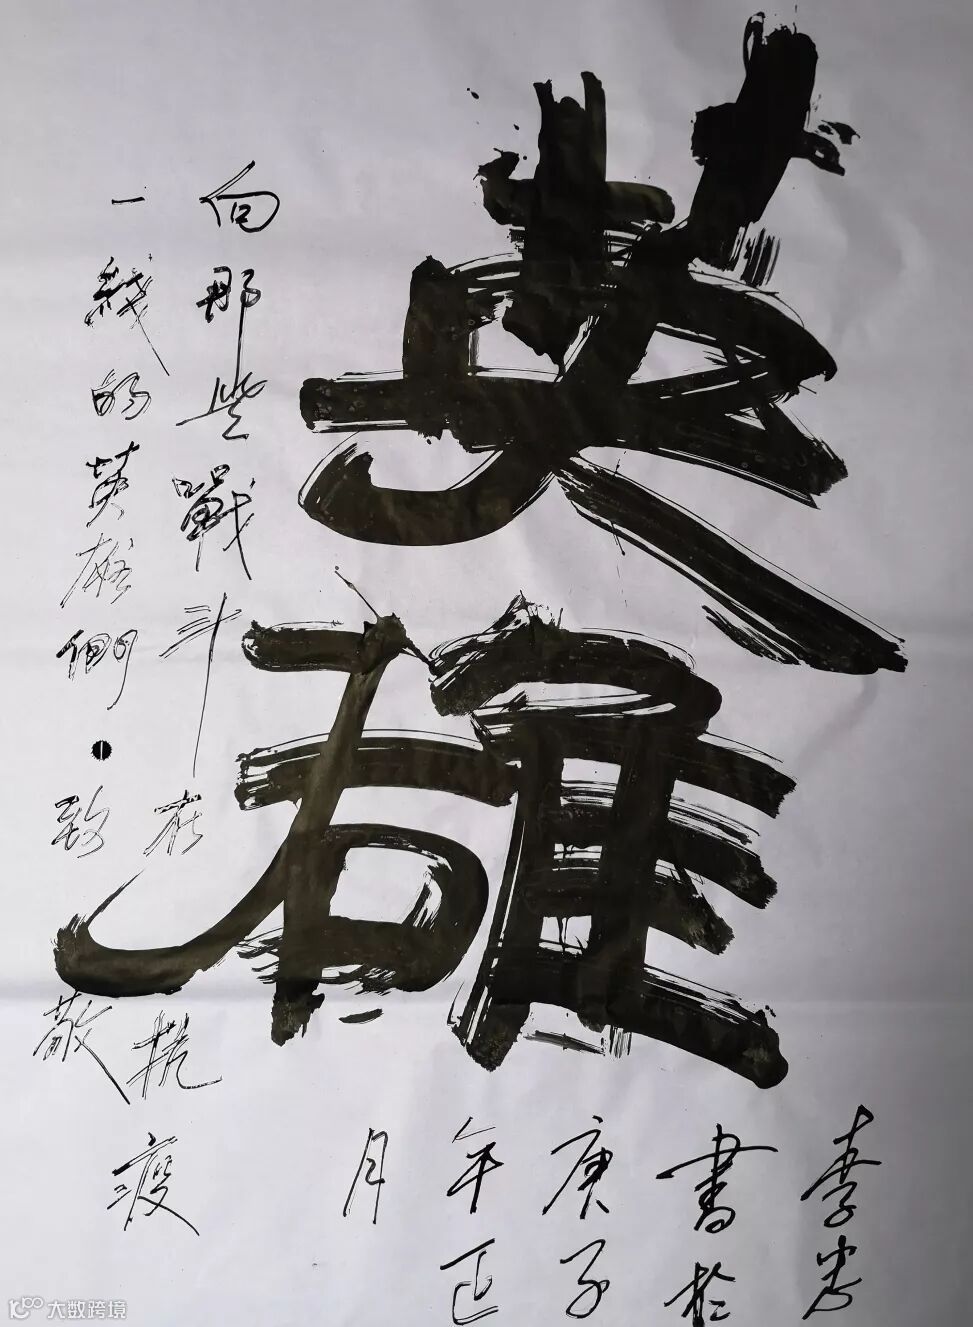 英雄
向那些戰斗在抗疫
一綫的英雄們致敬
李
書於
庚子
年正
月
大数跨境